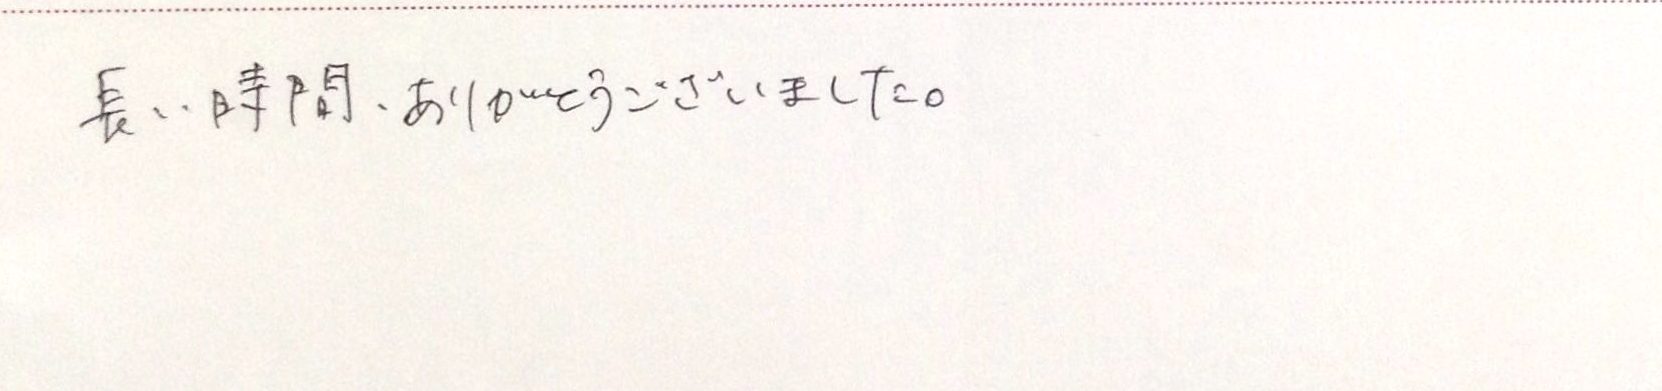 長い時間、ありがとうございました。